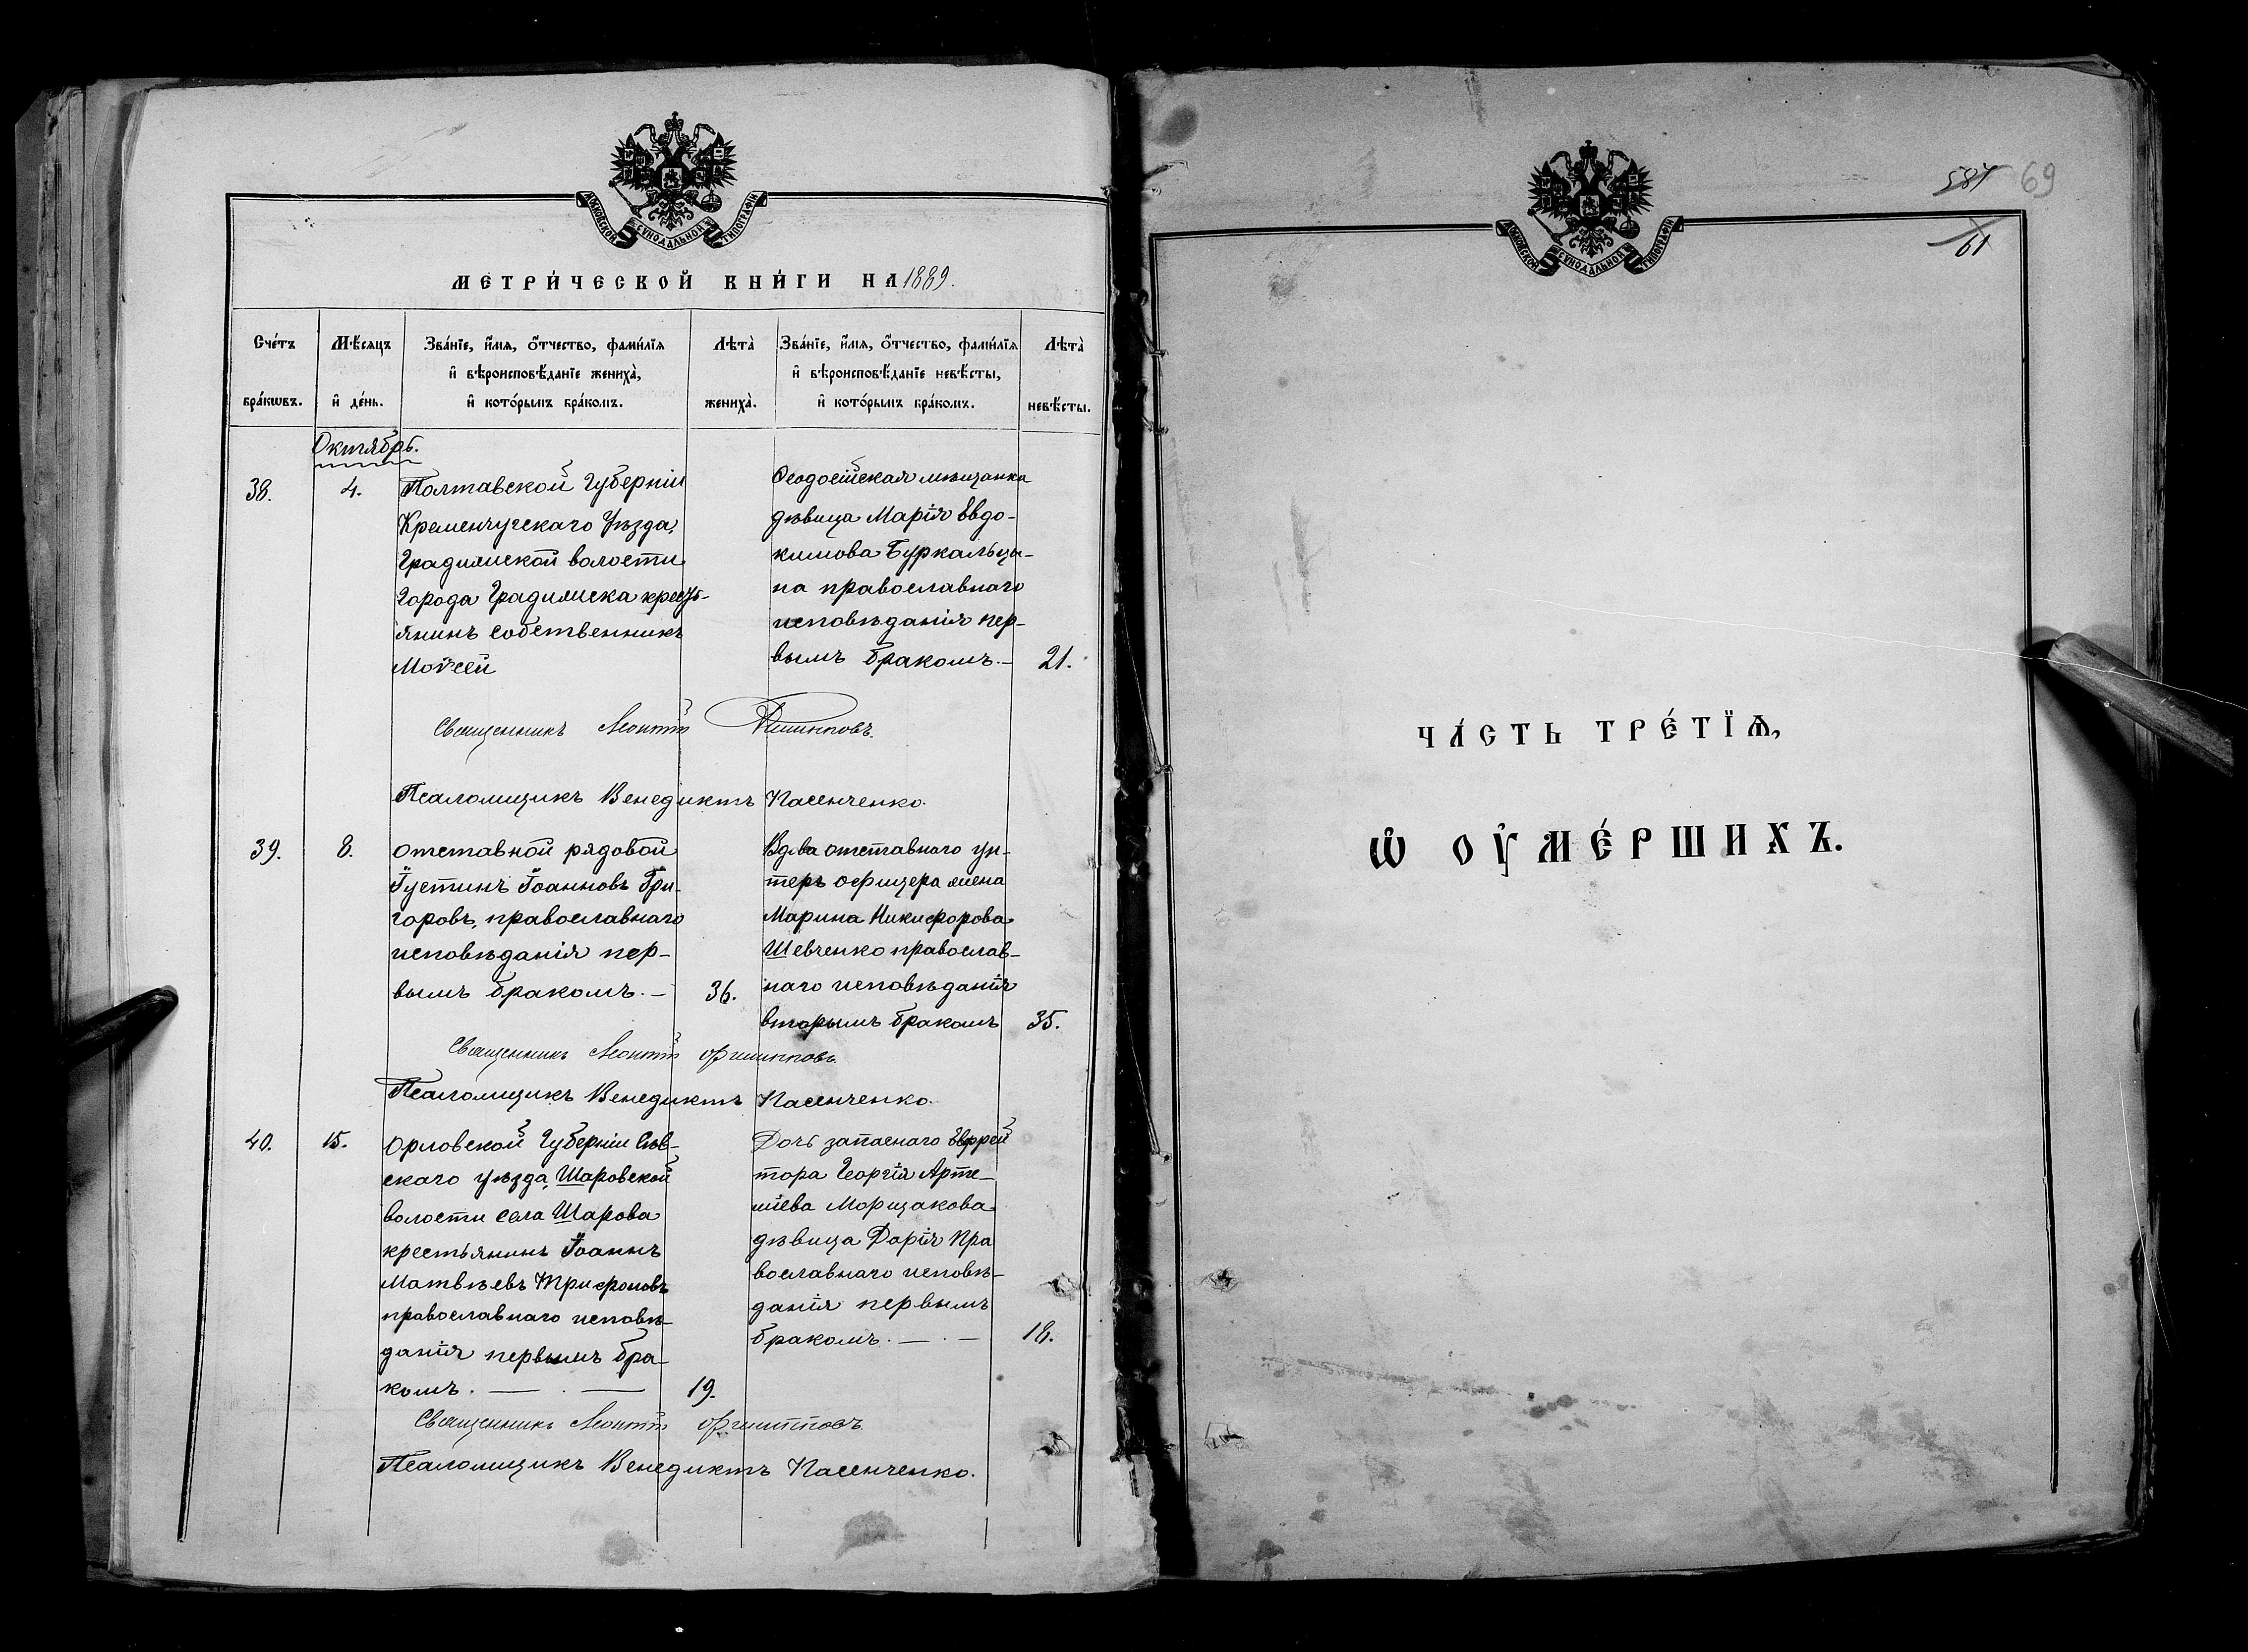 МОСКОВСКОЙ СѴНОДАЛЬНОЙ ТИПОГРАФІИ
МЕТРИ́ЧЕСКОЙ КНИ́ГИ НА 1889.
Сче́тъ бра́кѡвъ.
Мѣ́сяцъ и҆ де́нь.
Зва́нїе, и҆́мѧ, ѻ҆́тчество, фами́лїѧ
и҆ вѣроисповѣ́данїе жениха̀,
и҆ кото́рымъ бра́комъ.
Лѣта̀ жениха̀.
Зва́нїе, и҆́мѧ, ѻ҆́тчество, фами́лїѧ
и҆ вѣроисповѣ́данїе невѣ́сты,
и҆ кото́рымъ бра́комъ.
Лѣта̀ невѣ́сты.
Октябрь.
38.
4.
Полтавской Губерніи
Кременчугскаго Уѣзда,
Градижской волости
Города Градижска кресть-
янинъ собственникъ
Моѵсей
Ѳеодосійская мѣщанка
дѣвица Марія Евдо-
кимова Буркальце-
ва православнаго
исповѣданія пер-
вымъ бракомъ.—
21.
Священникъ Леонтій Филипповъ.
Псаломщикъ Венедиктъ Пасенченко.
39.
8.
отставной рядовой
Іустинъ Іоанновъ Гри-
горовъ, православнаго
исповѣданія пер-
вымъ бракомъ.—
36.
Вдова отставнаго ун-
теръ офицера жена
Марина Никифорова
Шевченко православ-
наго исповѣданія
вторымъ бракомъ
35.
Священникъ Леонтій Филипповъ.
Псаломщикъ Венедиктъ Пасенченко.
40.
15.
Орловской Губерніи Сѣв-
скаго уѣзда, Шаровской
волости села Шарова
крестьянинъ Іоаннъ
Матвѣевъ Трифоновъ
православнаго исповѣ-
данія первымъ бра-
комъ. — . —
19.
Дочь запаснаго Ефрей
тора Георгія Арте-
міева Морщакова
дѣвица Дарія Пра
вославнаго исповѣ-
данія первымъ
бракомъ. — . —
18.
Священникъ Леонтій Филипповъ.
Псаломщикъ Венедиктъ Пасенченко.
581 69
61
МОСКОВСКОЙ СѴНОДАЛЬНОЙ ТИПОГРАФІИ
ЧА́СТЬ ТРЕ́ТЇѦ,
Ѡ҆ ОУ҆МЕ́РШИХЪ.